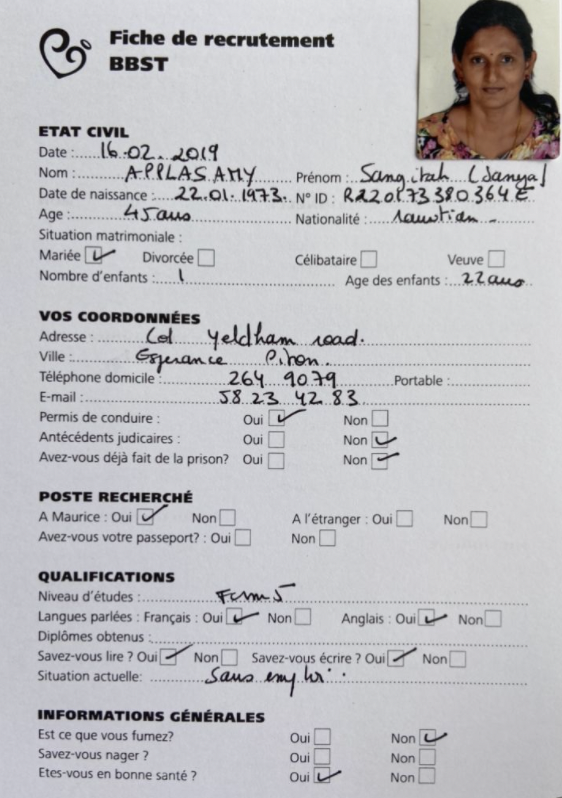 Fiche de recrutement
BBST
ETAT CIVIL
Date : 16-02-2019
Nom : APPLASAMY Prénom : Sangitah (Sanya)
Date de naissance : 22.01.1973. N° ID : R220173380364E
Age : 45 ans Nationalité :
Situation matrimoniale :
Mariée Divorcée Célibataire Veuve
Nombre d'enfants : 1 Age des enfants : 22 ans
VOS COORDONNÉES
Adresse : Col Yeldham road.
Ville : Esperance Piton.
Téléphone domicile : 264 9079 Portable :
E-mail : 58 23 42 83
Permis de conduire : Oui Non
Antécédents judicaires : Oui Non
Avez-vous déjà fait de la prison? Oui Non
POSTE RECHERCHÉ
A Maurice : Oui Non A l'étranger : Oui Non
Avez-vous votre passeport? : Oui Non
QUALIFICATIONS
Niveau d'études : Form 5
Langues parlées : Français : Oui Non Anglais : Oui Non
Diplômes obtenus :
Savez-vous lire ? Oui Non Savez-vous écrire ? Oui Non
Situation actuelle: Sans
INFORMATIONS GÉNÉRALES
Est ce que vous fumez? Oui Non
Savez-vous nager ? Oui Non
Etes-vous en bonne santé ? Oui Non